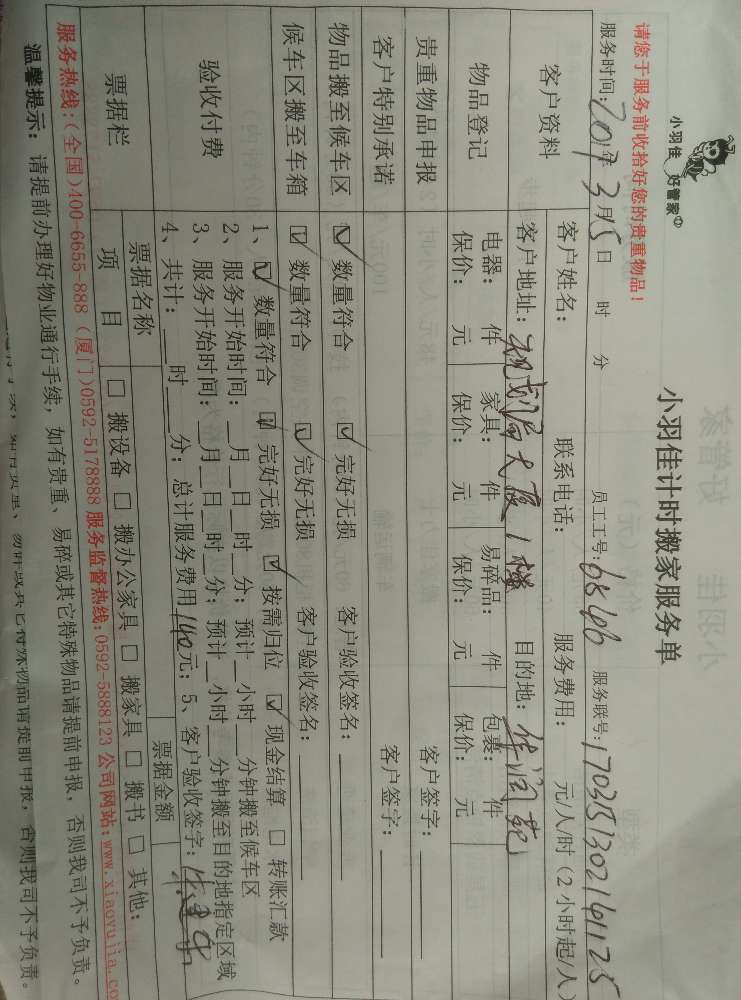 小羽佳 好管家
小羽佳计时搬家服务单
请您于服务前收拾好您的贵重物品!
服务时间:2017年3月15日 时 分 员工工号:6866 服务联号:1703151302161125
客户资料 客户姓名: 联系电话: 服务费用: 元/人/时(2小时起/人
客户地址: 大厦1楼 目的地:华润苑
物品登记 电器: 件 家具: 件 易碎品: 件 包裹: 件
保价: 元 保价: 元 保价: 元 保价: 元
贵重物品申报 客户签字:
客户特别承诺 客户签字:
物品搬至候车区 ☑ 数量符合 ☑ 完好无损 客户验收签名:
候车区搬至车箱 ☑ 数量符合 ☑ 完好无损 客户验收签名:
验收付费 1、☑ 数量符合 ☑ 完好无损 ☑ 按需归位 ☑ 现金结算 □ 转账汇款
2、服务开始时间:__月__日__时__分;预计__小时__分钟搬至候车区
3、服务开始时间:__月__日__时__分;预计__小时__分钟搬至目的地指定区域
4、共计:__时__分;总计服务费用140元;5、客户验收签字:
票据栏 票据名称 票据金额
项 目 □ 搬设备 □ 搬办公家具 □ 搬家具 □ 搬书 □ 其他:
服务热线:(全国)400-6655-888 (厦门)0592-5178888 服务监督热线:0592-5888123 公司网站:www.xiaoyujia.co
温馨提示: 请提前办理好物业通行手续,如有贵重、易碎或其它特殊物品请提前申报,否则我司不予负责。